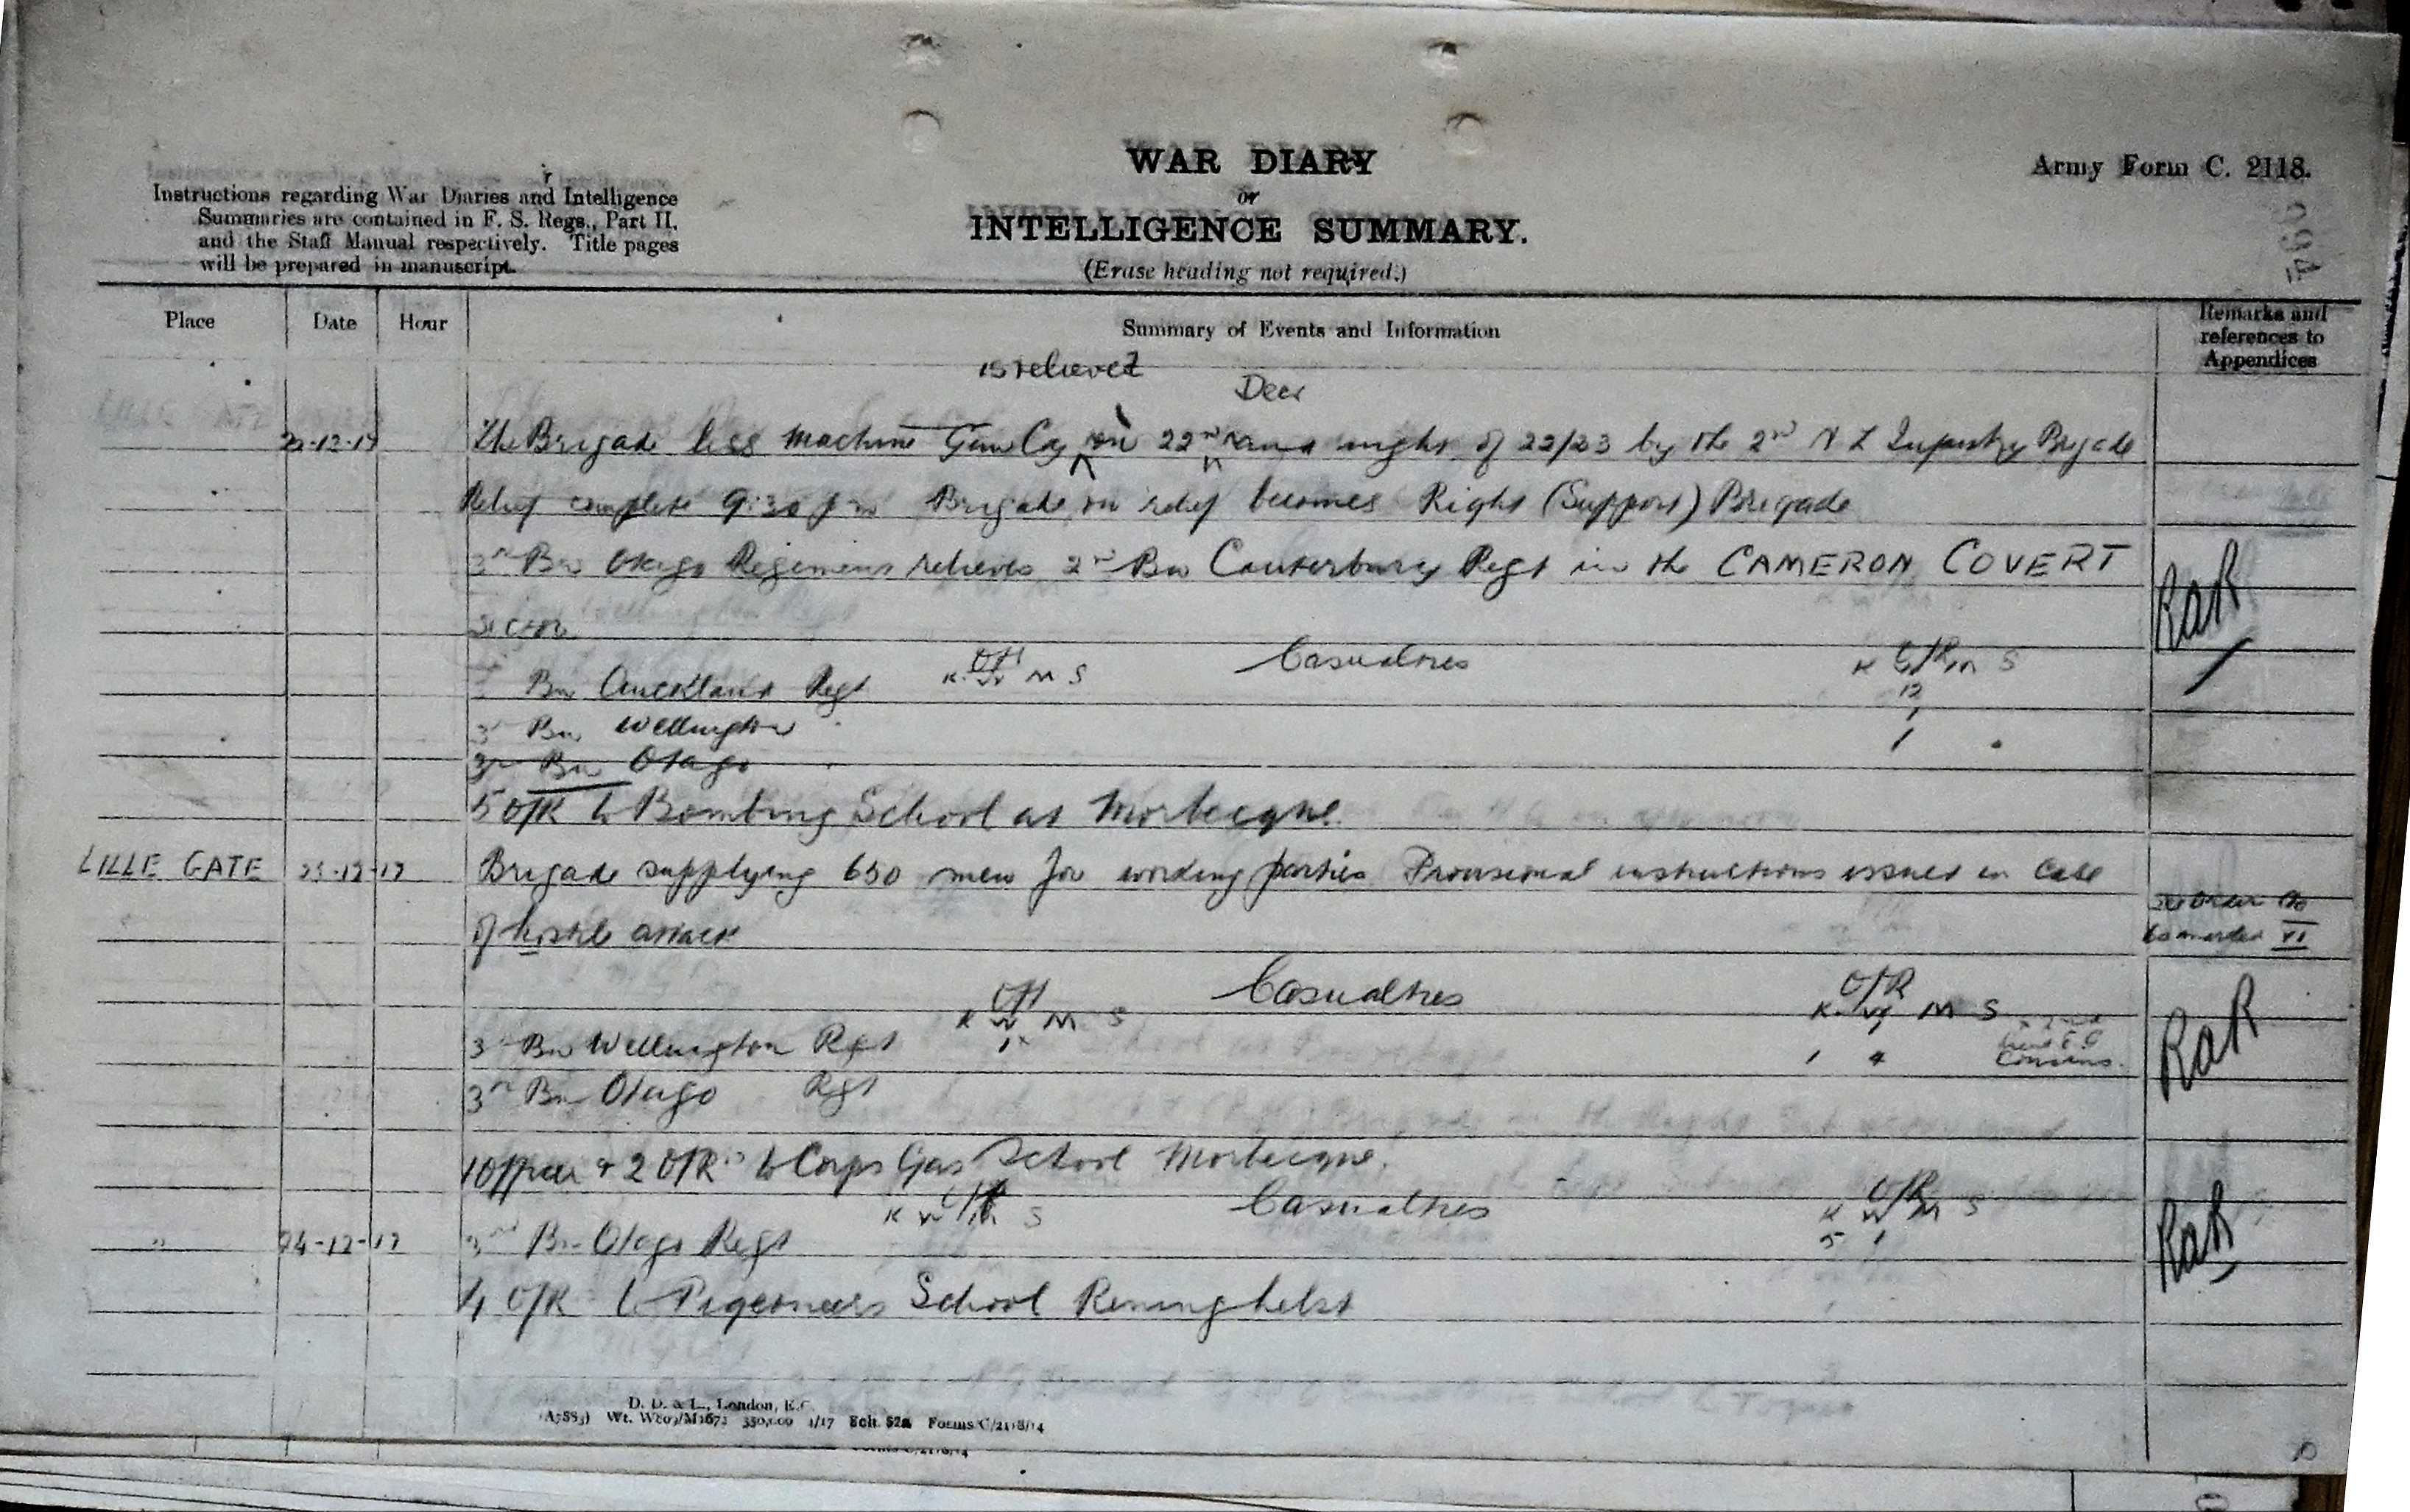 WAR DIARY
or
INTELLIGENCE SUMMARY.
(Erase heading not required.)
Army Form C. 2118.
Instructions regarding War Diaries and Intelligence
Summaries are contained in F. S. Regs., Part II.
and the Staff Manual respectively. Title pages
will be prepared in manuscript.
Place Date Hour Summary of Events and Information Remarks and references to Appendices
is relieved Decr
22-12-17 The Brigade less Machine Gun Coy on 22nd and night of 22/23 by the 2nd N Z Infantry Brigade
Relief complete 9:30 pm Brigade on relief becomes Right (Support) Brigade
3rd Bn Otago Regiment relieves 2nd Bn Canterbury Regt in the CAMERON COVERT
Sector RaR
Off Casualties O/R
K W M S K W M S
Bn Auckland Regt 12
3rd Bn Wellington " 1
3rd Bn Otago " 1
5 O/R to Bombing School at Morbecque.
LILLE GATE 23-12-17 Brigade supplying 650 men for working parties Provisional instructions issued in case
of hostile attack VI
Off Casualties O/R
K W M S K W M S RaR
3rd Bn Wellington Regt 1x 1 x 2nd
Lieut Cousins.
3rd Bn Otago Regt 1 4
1 Officer & 2 O/R's to Corps Gas School Morbecque.
Off Casualties O/R
K W M S K W M S RaR
" 24-12-17 3rd Bn Otago Regt 5 1
4 O/R to Pigeoneers School Reninghelst
D. D. & L., London, E.C.
(A7883) Wt. W809/M1672 350,000 4/17 Sch. 52a Forms/C/2118/14